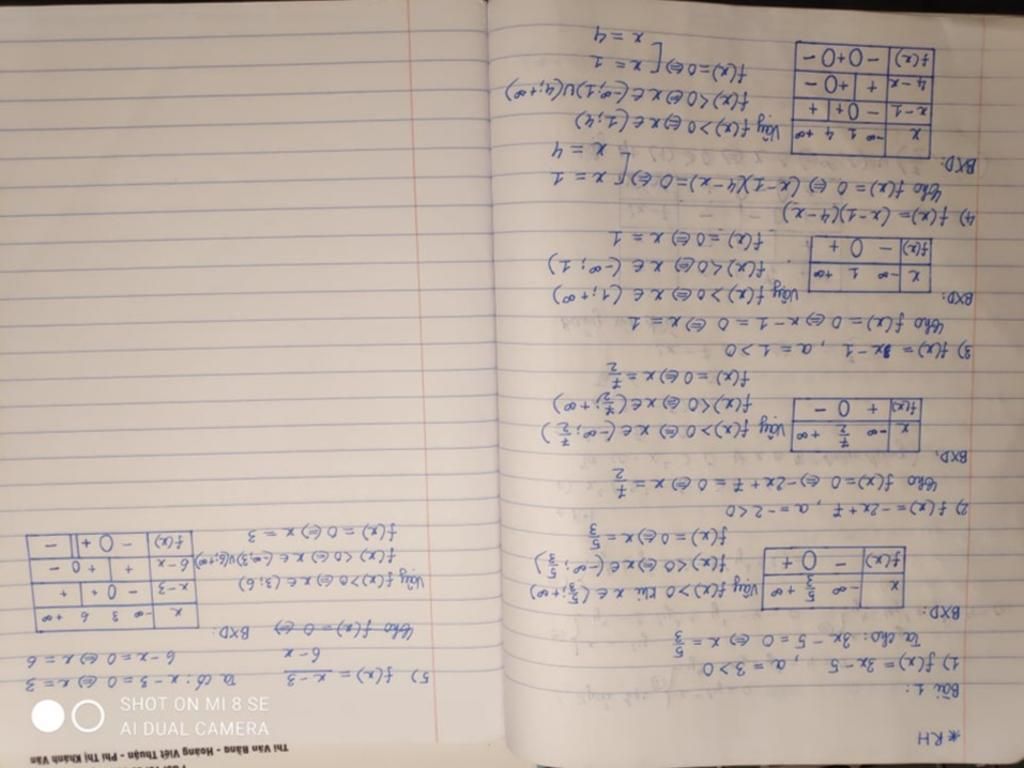 * RH
Bài 1:
1) f(x) = 3x - 5 , a = 3 > 0
Ta cho: 3x - 5 = 0 ⇔ x = 5/3
BXD:
x | -∞ 5/3 +∞
f(x) | - 0 +
Vậy f(x) > 0 khi x ∈ (5/3; +∞)
f(x) < 0 ⇔ x ∈ (-∞; 5/3)
f(x) = 0 ⇔ x = 5/3
2) f(x) = -2x + 7 , a = -2 < 0
Cho f(x) = 0 ⇔ -2x + 7 = 0 ⇔ x = 7/2
BXD.
x | -∞ 7/2 +∞
f(x) | + 0 -
Vậy f(x) > 0 ⇔ x ∈ (-∞; 7/2)
f(x) < 0 ⇔ x ∈ (7/2; +∞)
f(x) = 0 ⇔ x = 7/2
3) f(x) = x - 1 , a = 1 > 0
Cho f(x) = 0 ⇔ x - 1 = 0 ⇔ x = 1
BXD:
x | -∞ 1 +∞
f(x) | - 0 +
Vậy f(x) > 0 ⇔ x ∈ (1; +∞)
f(x) < 0 ⇔ x ∈ (-∞; 1)
f(x) = 0 ⇔ x = 1
4) f(x) = (x - 1)(4 - x)
Cho f(x) = 0 ⇔ (x - 1)(4 - x) = 0 ⇔ [ x = 1
x = 4
BXD:
x | -∞ 1 4 +∞
x - 1 | - 0 + | +
4 - x | + | + 0 -
f(x) | - 0 + 0 -
Vậy f(x) > 0 ⇔ x ∈ (1; 4)
f(x) < 0 ⇔ x ∈ (-∞; 1) ∪ (4; +∞)
f(x) = 0 ⇔ [ x = 1
x = 4
5) f(x) = (x - 3)/(6 - x) Ta có: x - 3 = 0 ⇔ x = 3
6 - x = 0 ⇔ x = 6
Cho f(x) = 0 ⇔ BXD:
x | -∞ 3 6 +∞
x - 3 | - 0 + | +
6 - x | + | + 0 -
f(x) | - 0 + || -
Vậy f(x) > 0 ⇔ x ∈ (3; 6)
f(x) < 0 ⇔ x ∈ (-∞; 3) ∪ (6; +∞)
f(x) = 0 ⇔ x = 3
Thi Văn Bằng - Hoàng Việt Thuận - Phi Thị Khánh Vân
SHOT ON MI 8 SE
AI DUAL CAMERA